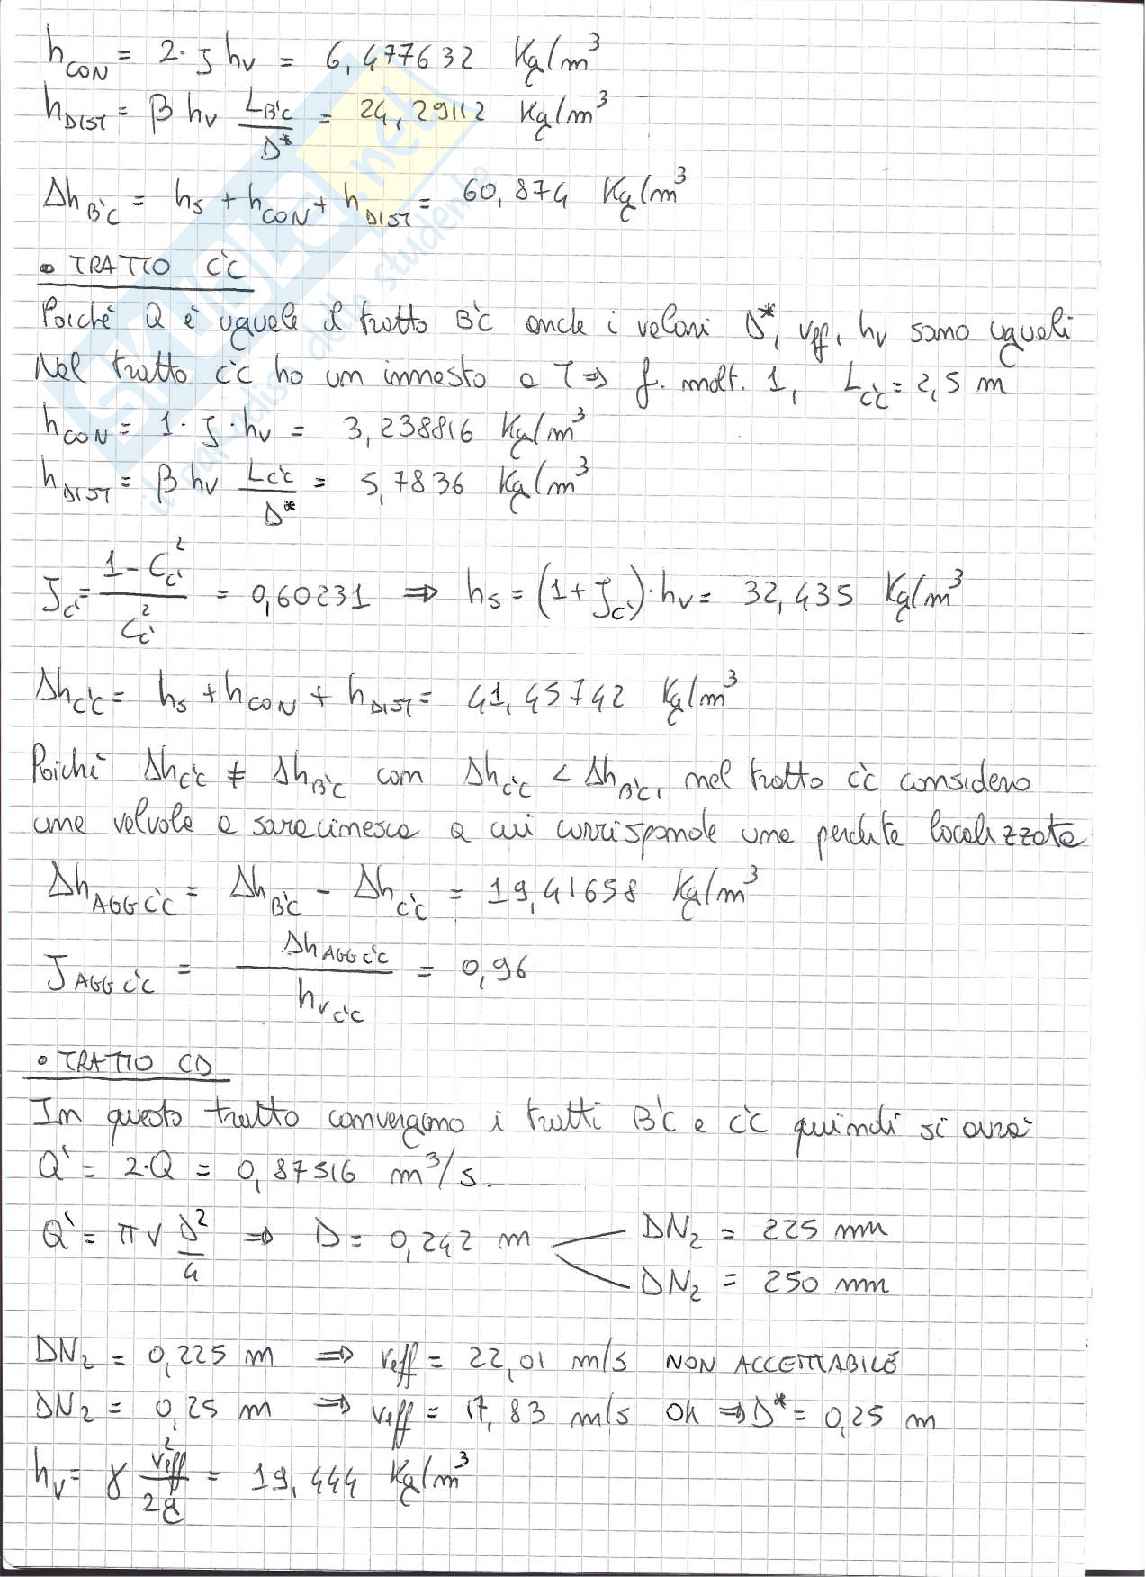 h_CON = 2·ζ h_v = 6,477632 Kg/m³
h_DIST = β h_v L_B'C / D* = 24,29112 Kg/m³
Δh_B'C = h_s + h_CON + h_DIST = 60,874 Kg/m³
• TRATTO C'C
Poiché Q è uguale il tratto B'C anche i valori D*, v_eff, h_v sono uguali
Nel tratto C'C ho un innesto a T ⇒ f. molt. 1, L_C'C = 2,5 m
h_CON = 1·ζ·h_v = 3,238816 Kg/m³
h_DIST = β h_v L_C'C / D* = 5,7836 Kg/m³
ζ_C' = (1 - C_C'²) / C_C'² = 0,60231 ⇒ h_s = (1+ζ_C')·h_v = 32,435 Kg/m³
Δh_C'C = h_s + h_CON + h_DIST = 41,45742 Kg/m³
Poiché Δh_C'C ≠ Δh_B'C con Δh_C'C < Δh_B'C, nel tratto C'C considero
una valvola a saracinesca a cui corrisponde una perdita localizzata
Δh_AGG C'C = Δh_B'C - Δh_C'C = 19,41658 Kg/m³
ζ_AGG C'C = Δh_AGG C'C / h_v C'C = 0,96
• TRATTO CD
In questo tratto convergono i tratti B'C e C'C quindi si avrà
Q' = 2·Q = 0,87516 m³/s.
Q' = π v D²/4 ⇒ D = 0,242 m
DN₂ = 225 mm
DN₂ = 250 mm
DN₂ = 0,225 m ⇒ v_eff = 22,01 m/s NON ACCETTABILE
DN₂ = 0,25 m ⇒ v_eff = 17,83 m/s OK ⇒ D* = 0,25 m
h_v = γ v_eff² / 2g = 19,444 Kg/m³